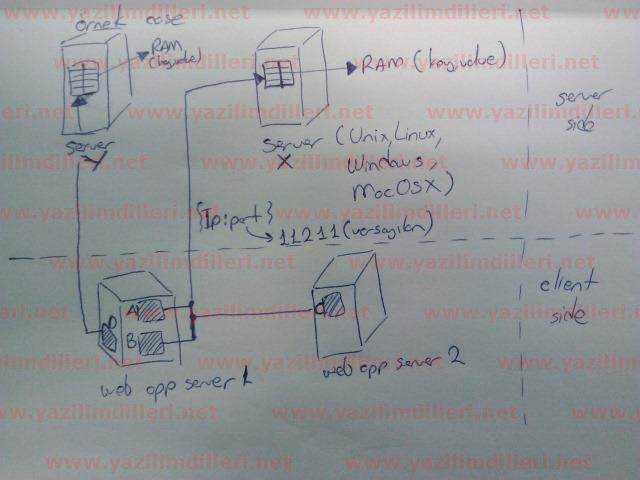 örnek case
RAM
(key,value)
server
Y
RAM (key,value)
server
X
(Unix, Linux,
Windows,
MacOSX)
server
side
{Ip:port}
11211 (varsayılan)
client
side
A
B
D
C
web app server 1
web app server 2
www.yazilimdilleri.net